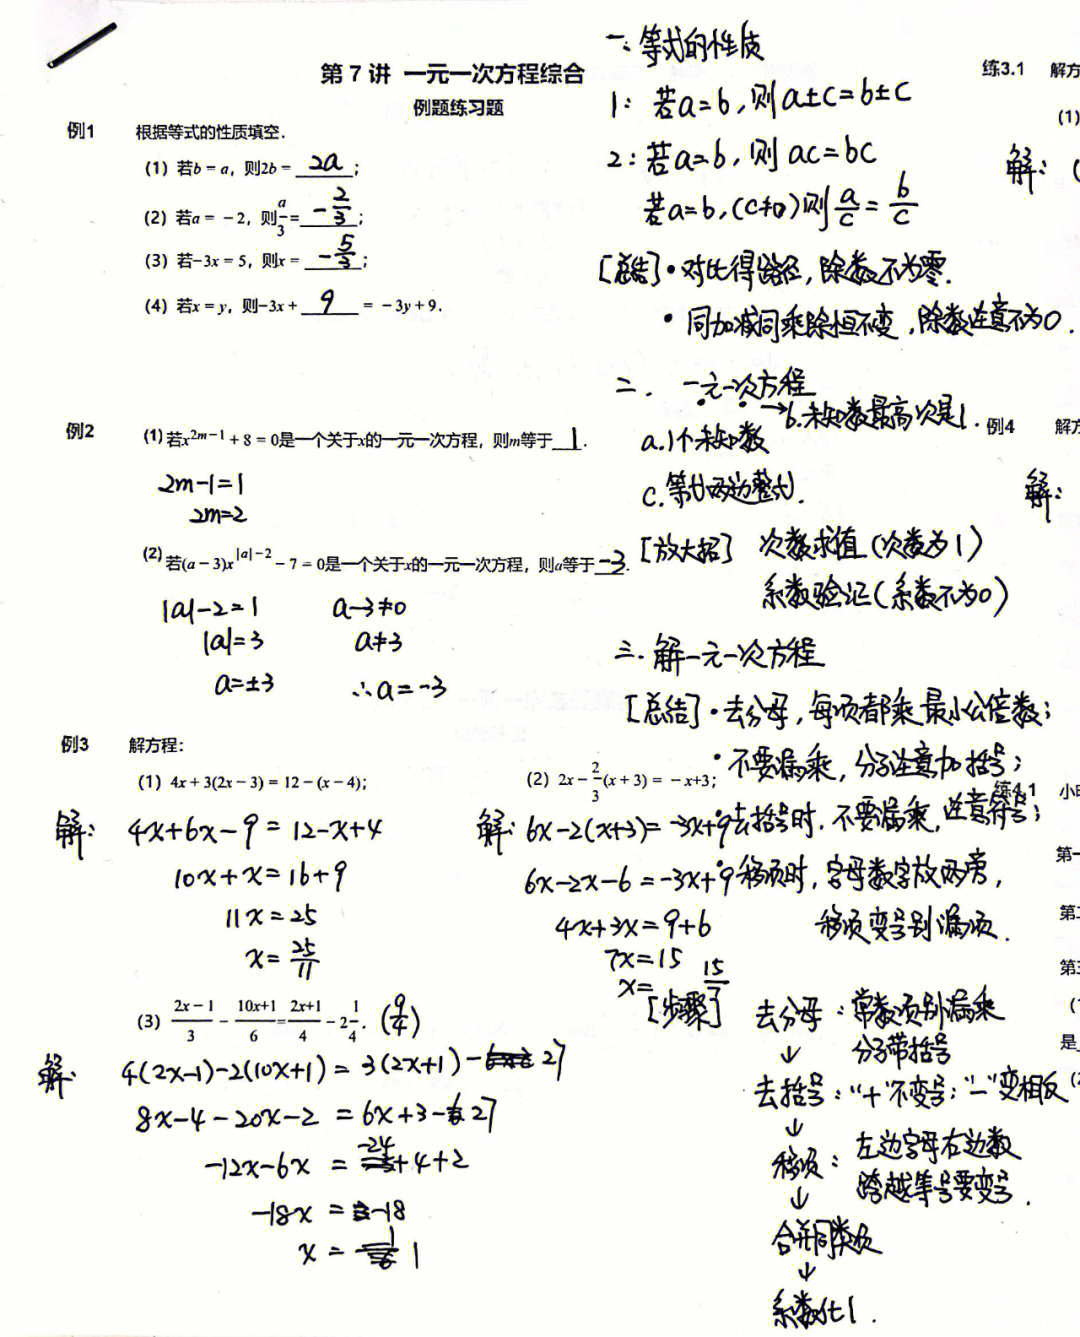 第 7 讲 一元一次方程综合
例题练习题
例1 根据等式的性质填空.
(1) 若b = a，则2b = 2a ;
(2) 若a = -2，则a/3 = -2/3 ;
(3) 若-3x = 5，则x = -5/3 ;
(4) 若x = y，则-3x + 9 = -3y + 9.
例2 (1) 若x^{2m-1} + 8 = 0是一个关于x的一元一次方程，则m等于 1 .
2m-1=1
2m=2
(2) 若(a-3)x^{|a|-2} - 7 = 0是一个关于x的一元一次方程，则a等于 -3 .
|a|-2=1 a-3≠0
|a|=3 a≠3
a=±3 ∴a=-3
例3 解方程：
(1) 4x + 3(2x - 3) = 12 - (x - 4);
解: 4x+6x-9=12-x+4
10x+x=16+9
11x=25
x=25/11
(2) 2x - 2/3(x + 3) = -x+3;
解: 6x-2(x+3)=-3x+9
6x-2x-6=-3x+9
4x+3x=9+6
7x=15
x=15/7
(3) (2x-1)/3 - (10x+1)/6 = (2x+1)/4 - 2 1/4. (9/4)
解: 4(2x-1)-2(10x+1)=3(2x+1)-27
8x-4-20x-2=6x+3-27
-12x-6x=-24+4+2
-18x=-18
x=1
一、等式的性质
1: 若a=b,则a±c=b±c
2: 若a=b,则ac=bc
若a=b,(c≠0)则a/c=b/c
[总结]·对比得路径,除数不为零.
·同加减同乘除恒不变,除数注意不为0.
二. 一元一次方程
→b.未知数最高次是1.
a.1个未知数
c.等式两边整式.
[放大招] 次数求值(次数为1)
系数验证(系数不为0)
三.解一元一次方程
[总结]·去分母,每项都乘最小公倍数;
·不要漏乘,分子注意加括号;
·去括号时.不要漏乘,注意符号;
·移项时,字母数字放两旁,
移项变号别漏项.
[步骤] 去分母:常数项别漏乘
分子带括号
↓
去括号:"+"不变号;"-"变相反
↓
移项:左边字母右边数
跨越等号要变号.
↓
合并同类项
↓
系数化1.
练3.1 解方
(1)
解: (
例4 解方
解:
练4.1 小明
第一
第二
第三
(1
是
(2